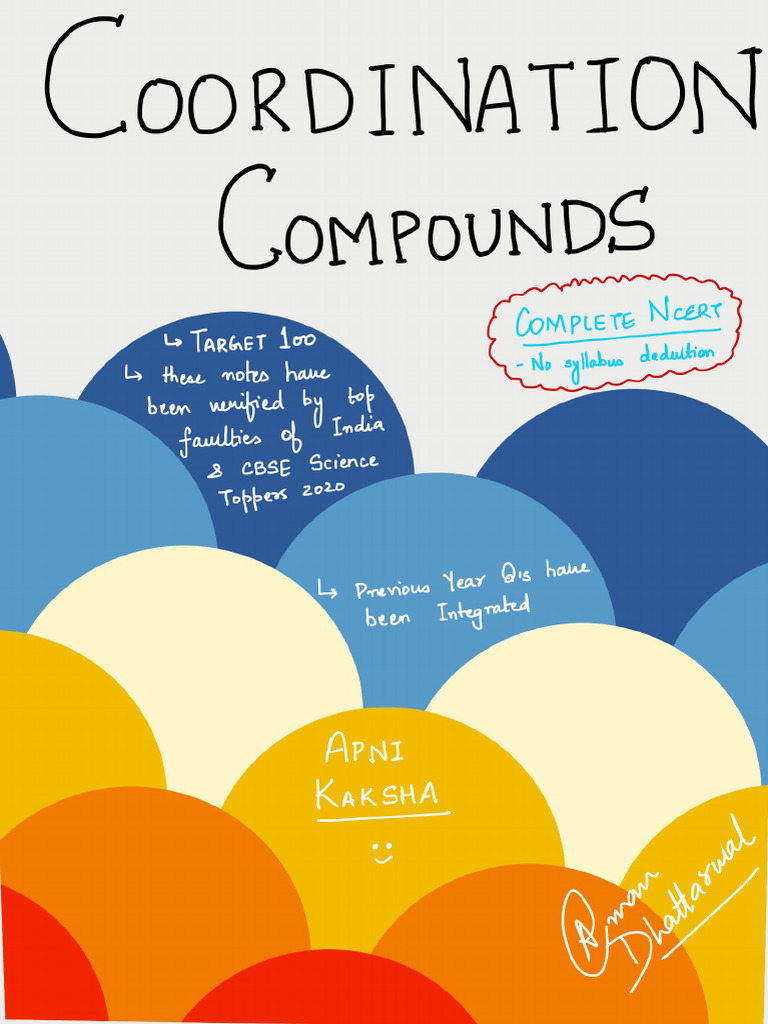 COORDINATION
COMPOUNDS
COMPLETE NCERT
- No syllabus deduction
↳ TARGET 100
↳ these notes have
been verified by top
faulties of India
& CBSE Science
Toppers 2020
↳ Previous Year Q's have
been Integrated
APNI
KAKSHA
Aman
Dhattarwal